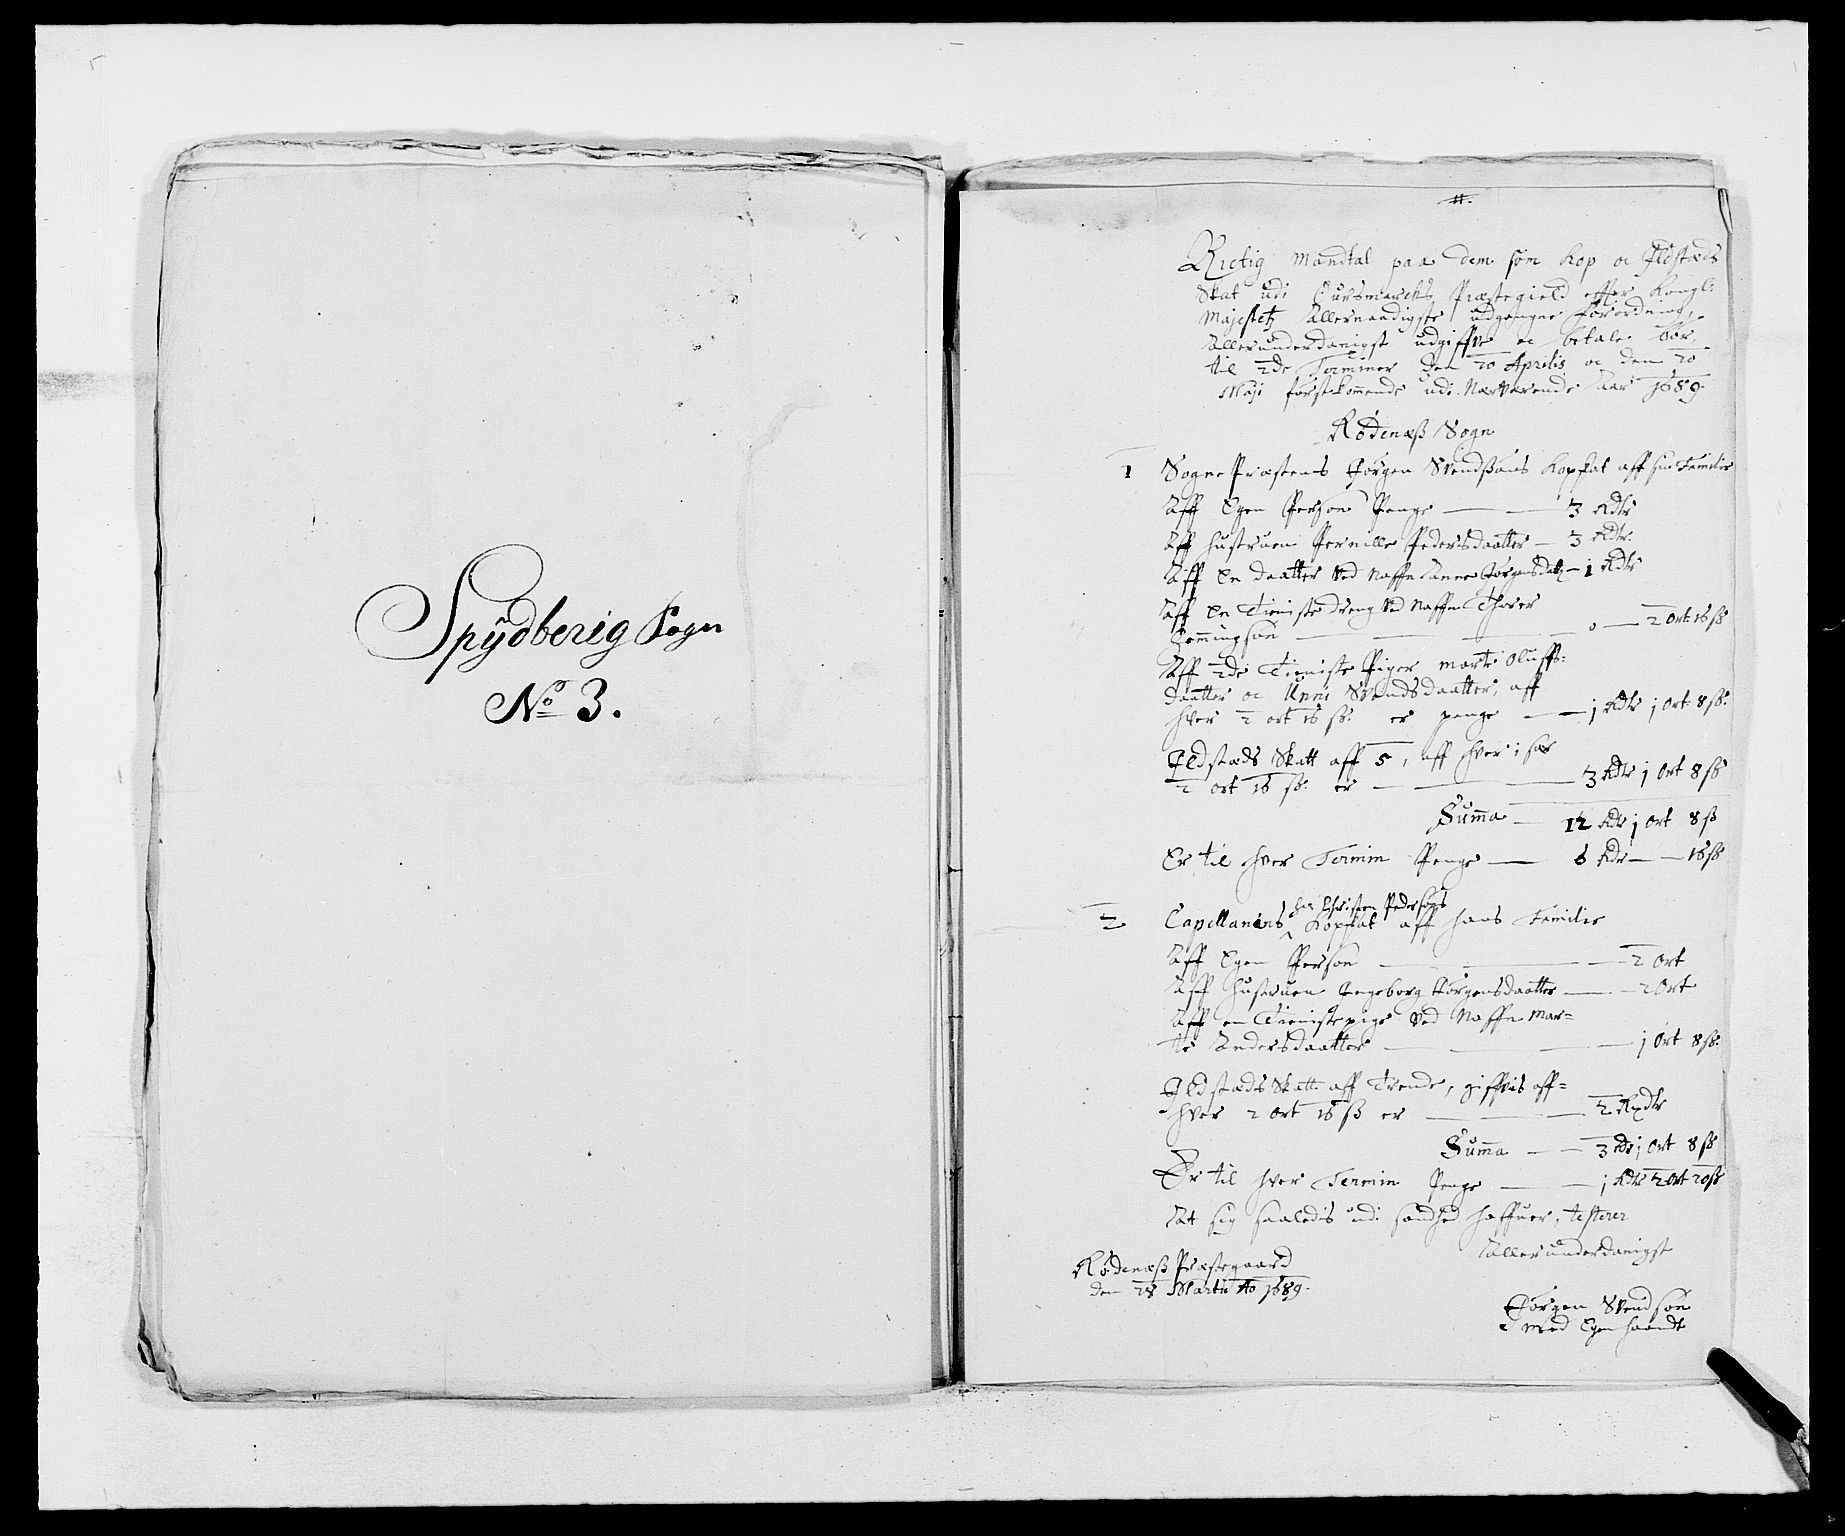 Spÿdberig Sogn
No 3.
#.
Rictig Mandtal paa dem som Kop oc Ildstæds
Skat udi Ourſmarcks Præstegield effter Kongl:
Majestetz Allernaadigste udgangne Forordning,
Allerunderdanigst udgiffve oc betale bør,
til 2de Terminer den 20 Aprilis oc den 20
Maji førstkommende udi Nærværende Aar 1689.
Rødenæß Sogn
1 Sogne Præstens Jørgen Svendßøns Kopskat aff sin Familie
Aff Egen Person Penge — 3 Rdlr
Aff Hustruen Pernille Pedersdaatter — 3 Rdlr.
Aff En daatter Ved Naffn Anne Jørgensdatz — 1 Rdlr
Aff En Tieniste dreng Ved Naffn Thorer
Tommingsøn — 0 — 2 Ort 16 ß
Aff 2de Tieniste Piger Marte Oluffs:
daatter oc Unni Svendsdaatter, aff
hver 2 ort 16 ß: er penge — 1 Rdlr 1 Ort 8 ß:
Ildstæds Skatt aff 5, aff hver i sær
2 ort 16 ß: er — 3 Rdlr 1 Ort 8 ß
Summa — 12 Rdlr 1 Ort 8 ß
Er til hver Termin Penge — 6 Rdlr — 16 ß
her Christen Pedersøns
2 Capellanens Kopskat aff hans Familie
Aff Egen Person — 2 Ort
Aff Hustruen Ingeborg Jørgensdaatter — 2 Ort
Aff en Tieniste pige Ved Naffn Mar=
te Andersdaatter — 1 Ort 8 ß:
Ildstæds Skatt aff Trende, giffvis aff=
hver 2 Ort 16 ß er — 2 Rixdlr
Summa — 3 Rdlr 1 Ort 8 ß
Er til hver Termin Penge — 1 Rdlr 2 Ort 20 ß
At sig saaledis udi sandhed haffuer, testerer
Allerunderdanigst
Rødenæß Præstegaard
den 28 Martii Ao 1689.
Jørgen Svendsøn
Med Egen haandt